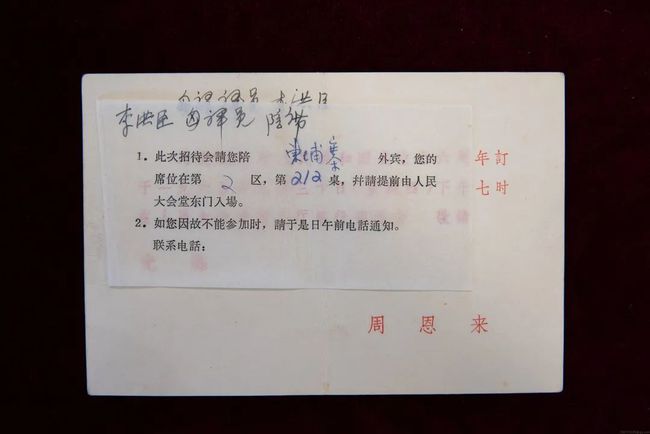 李洪臣 译员
1. 此次招待会請您陪 柬埔寨 外宾，您的 年訂
席位在第 2 区，第 212 桌，幷請提前由人民 七时
大会堂东门入場。
2. 如您因故不能参加时，請于是日午前电話通知。
联系电話：
周恩来